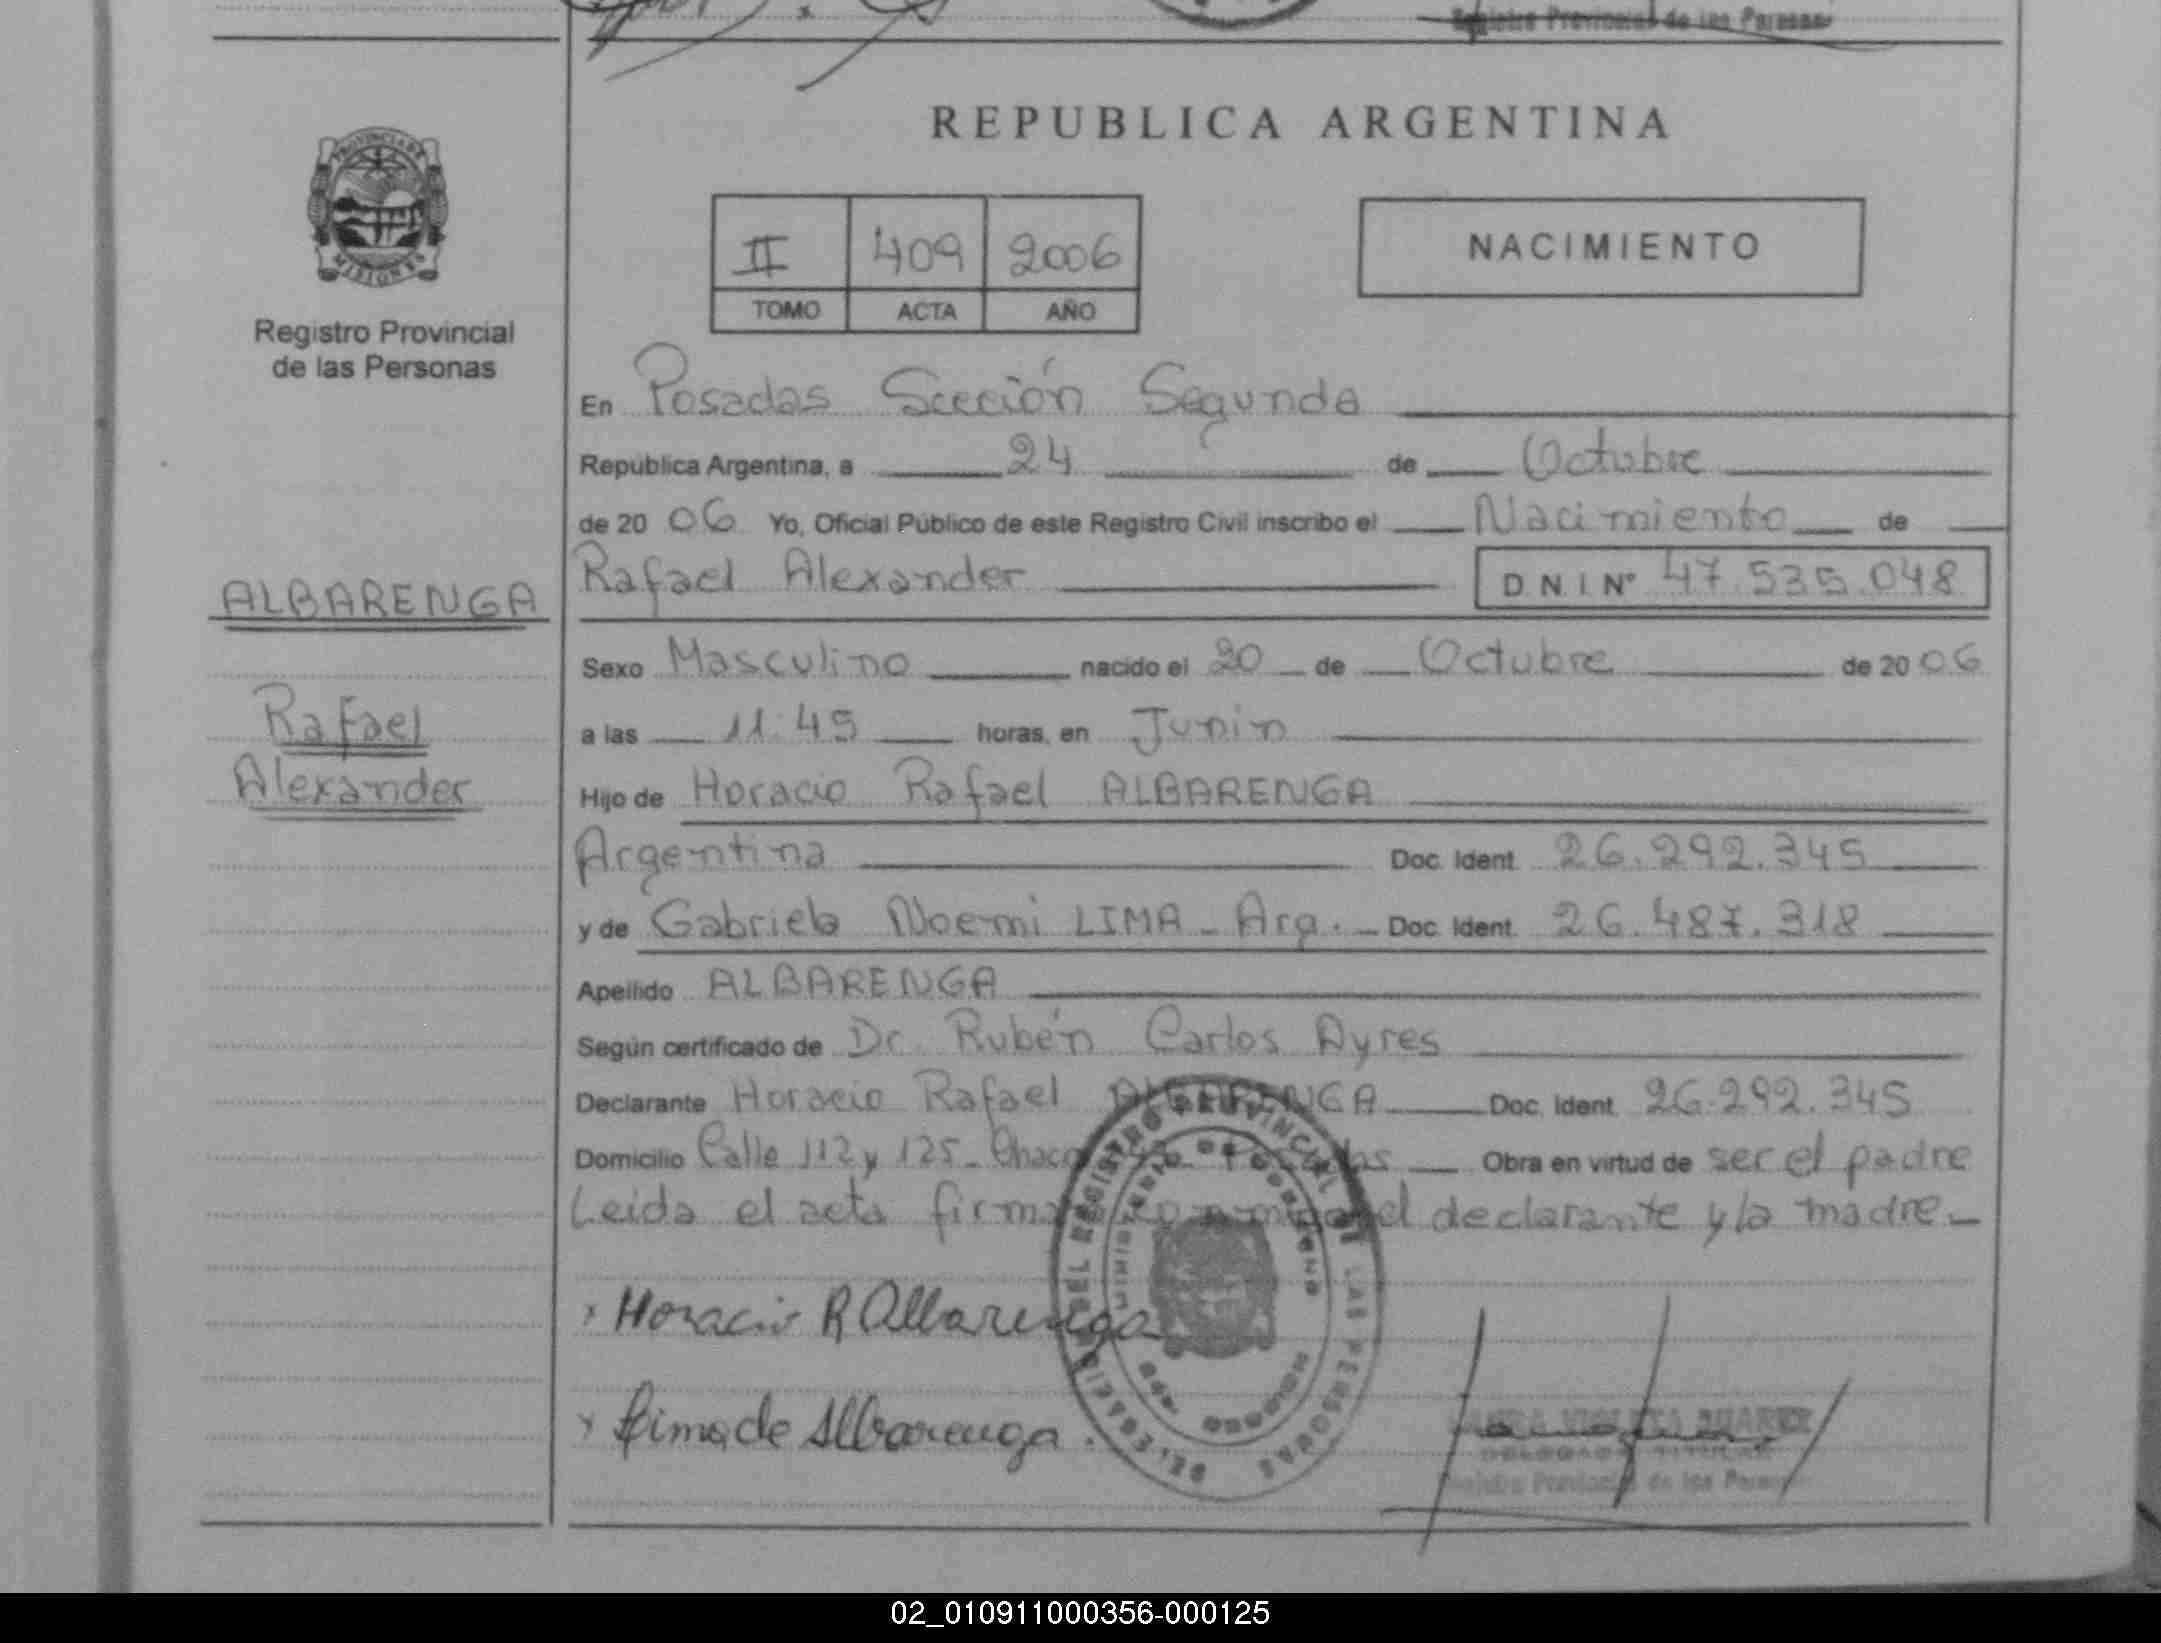 Registro Provincial de las Personas
REPUBLICA ARGENTINA
PROVINCIA DE
MISIONES
Registro Provincial
de las Personas
II 409 2006
TOMO ACTA AÑO
NACIMIENTO
ALBARENGA
Rafael
Alexander
En Posadas Sección Segunda
República Argentina, a 24 de Octubre
de 20 06 Yo, Oficial Público de este Registro Civil inscribo el Nacimiento de
Rafael Alexander D.N.I. Nº 47.535.048
Sexo Masculino nacido el 20 de Octubre de 20 06
a las 11:45 horas, en Junin
Hijo de Horacio Rafael ALBARENGA
Argentina Doc. Ident. 26.292.345
y de Gabriela Noemi LIMA - Arg. - Doc. Ident. 26.487.318
Apellido ALBARENGA
Según certificado de Dr. Rubén Carlos Ayres
Declarante Horacio Rafael ALBARENGA Doc. Ident. 26.292.345
Domicilio Calle 112 y 125 - Chac Posadas Obra en virtud de ser el padre
Leida el acta firma el declarante y la madre.-
x Horacio R Albarenga
x Lima de Albarenga.
DEL REGISTRO PROVINCIAL DE LAS PERSONAS
Registro Provincial de las Personas
02_010911000356-000125